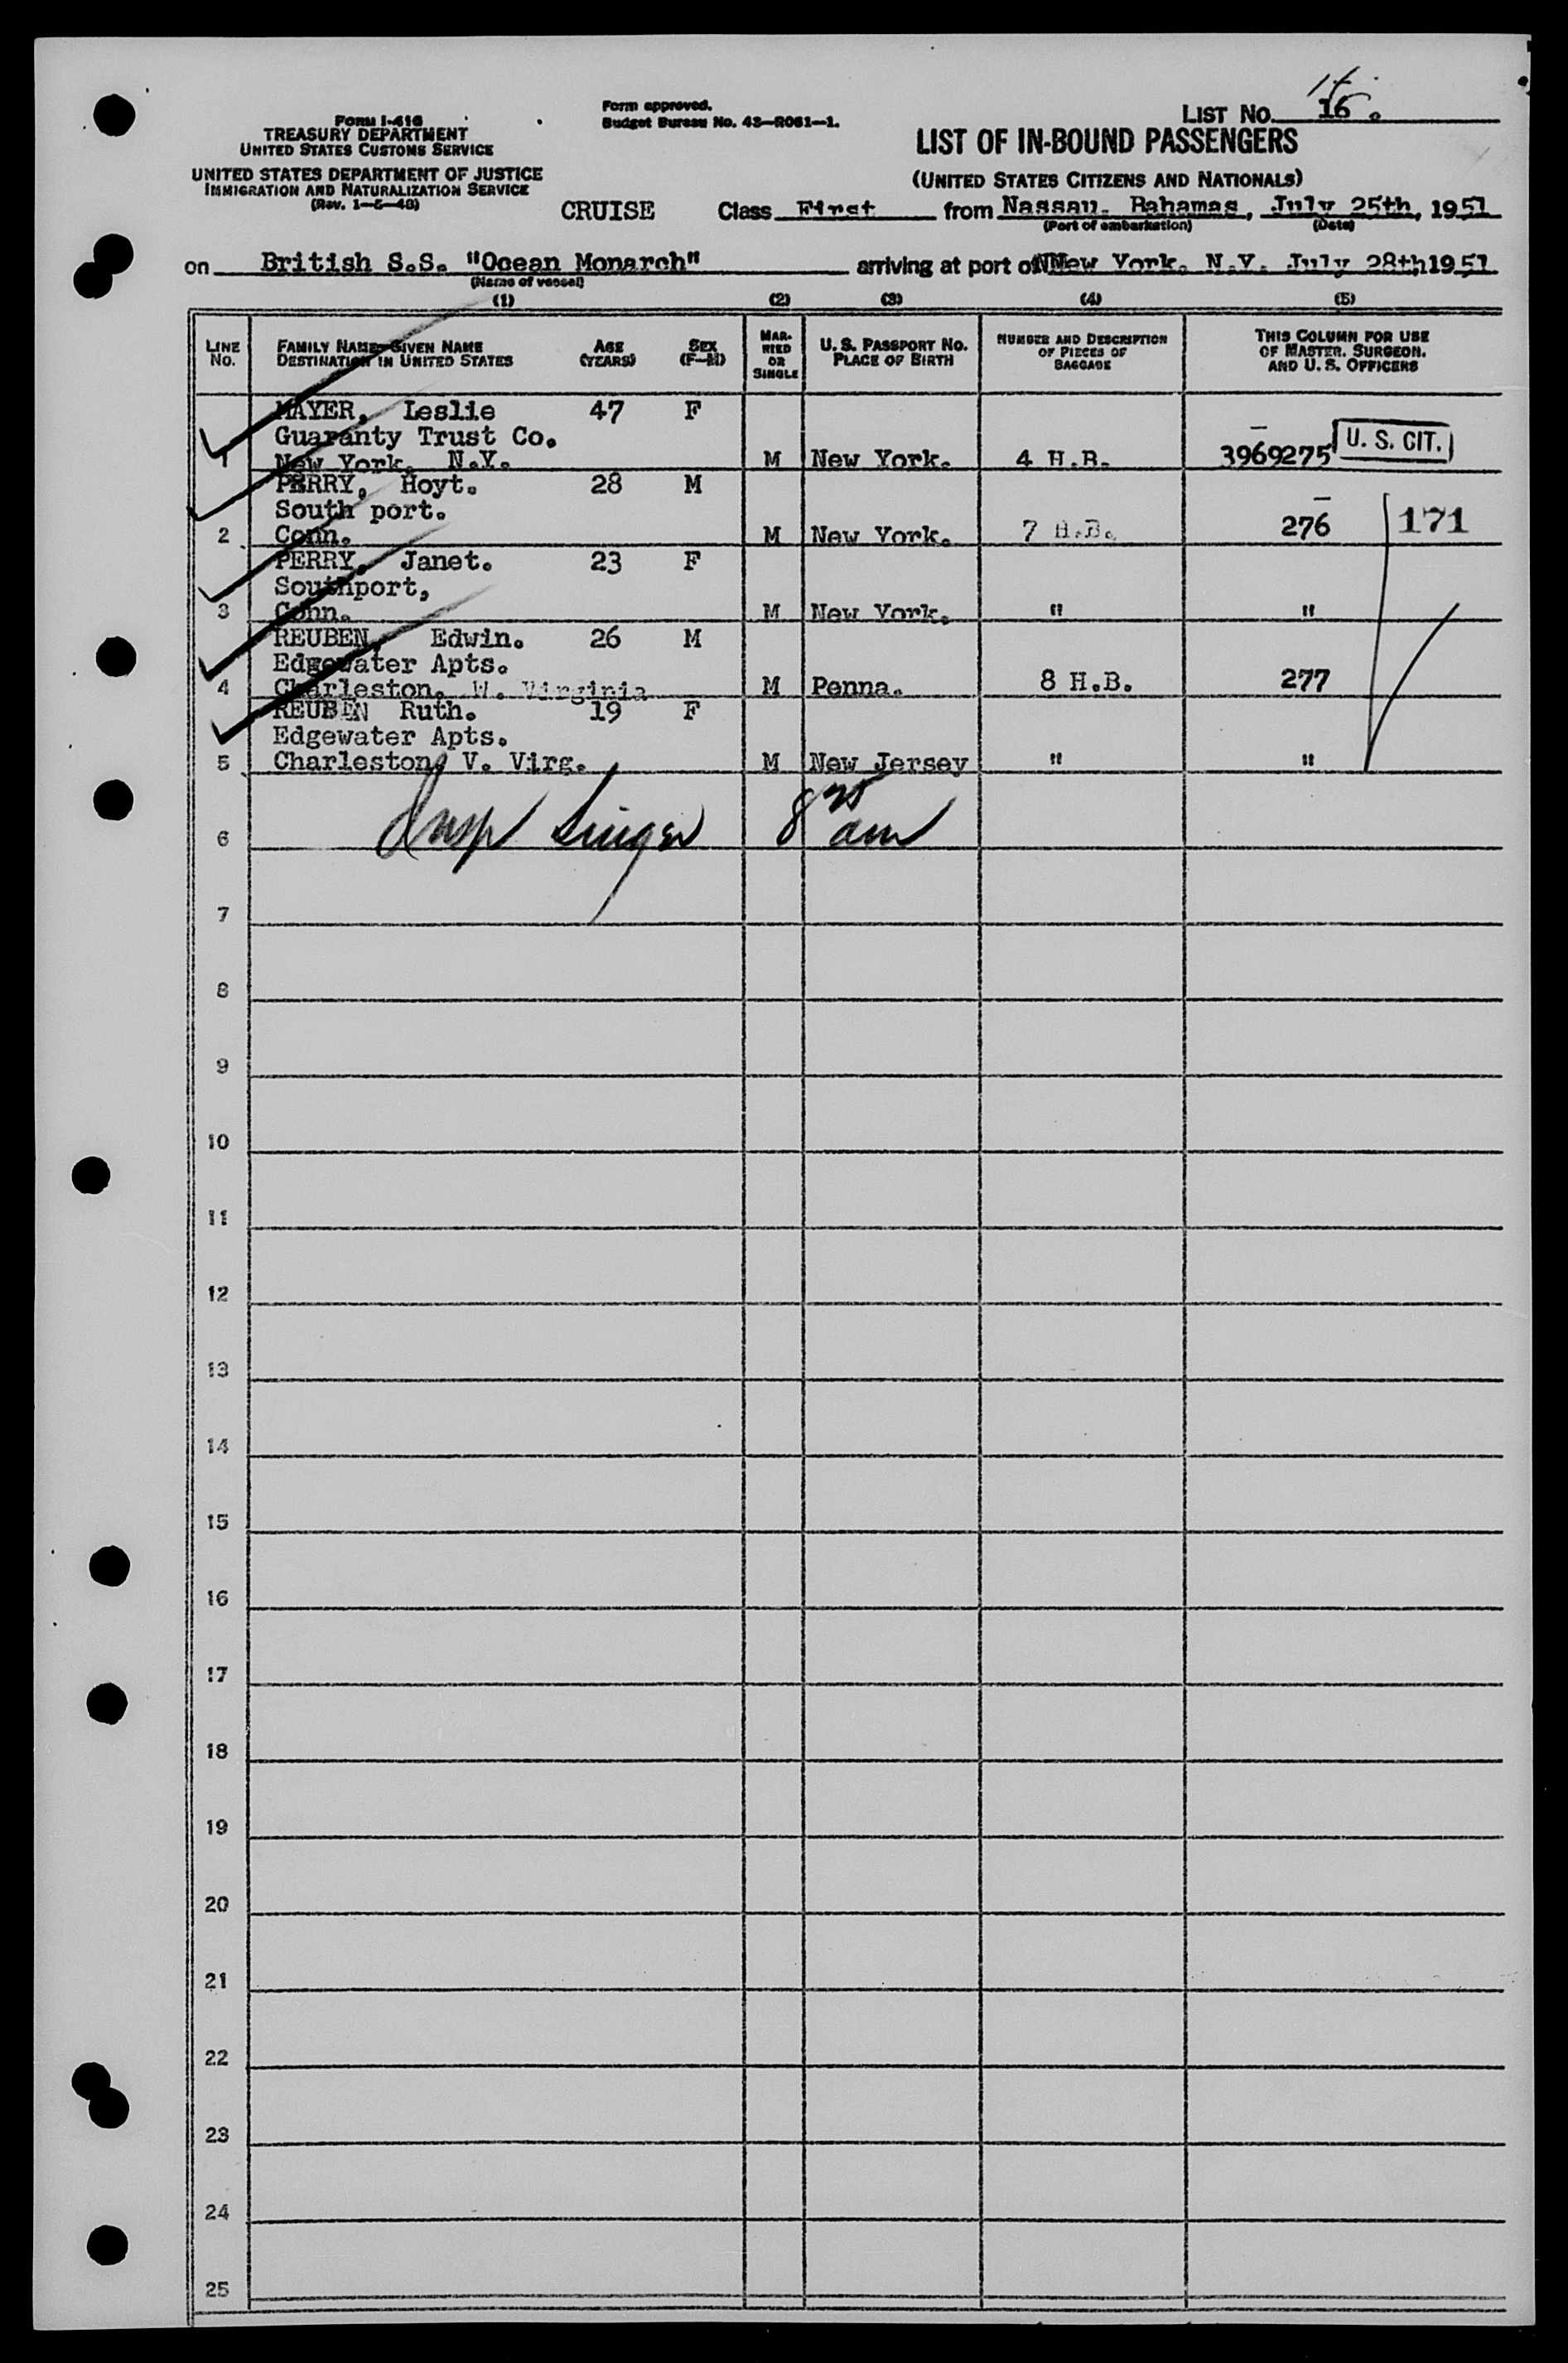 Form I-416
TREASURY DEPARTMENT
UNITED STATES CUSTOMS SERVICE
UNITED STATES DEPARTMENT OF JUSTICE
IMMIGRATION AND NATURALIZATION SERVICE
Form approved.
Budget Bureau No. 43—R061—1.
LIST NO. 16.
LIST OF IN-BOUND PASSENGERS
(UNITED STATES CITIZENS AND NATIONALS)
CRUISE Class First from Nassau. Bahamas, July 25th, 1951
(Port of embarkation) (Date)
on British S.S. "Ocean Monarch" arriving at port of New York. N.Y. July 28th 1951
(Name of vessel)
(1) (2) (3) (4) (5)
LINE NO. FAMILY NAME—GIVEN NAME DESTINATION IN UNITED STATES AGE (YEARS) SEX (F—M) MARRIED OR SINGLE U. S. PASSPORT NO. PLACE OF BIRTH NUMBER AND DESCRIPTION OF PIECES OF BAGGAGE THIS COLUMN FOR USE OF MASTER, SURGEON, AND U. S. OFFICERS
MAYER, Leslie 47 F
Guaranty Trust Co. U. S. CIT.
1 New York. N.Y. M New York. 4 H.B. 3969275
PERRY, Hoyt. 28 M
South port.
2 Conn. M New York. 7 H.B. 276 171
PERRY, Janet. 23 F
Southport,
3 Conn. M New York. " "
REUBEN, Edwin. 26 M
Edgewater Apts.
4 Charleston. W. Virginia M Penna. 8 H.B. 277
REUBEN Ruth. 19 F
Edgewater Apts.
5 Charleston, V. Virg. M New Jersey " "
6 Insp Singer 8 am
7
8
9
10
11
12
13
14
15
16
17
18
19
20
21
22
23
24
25